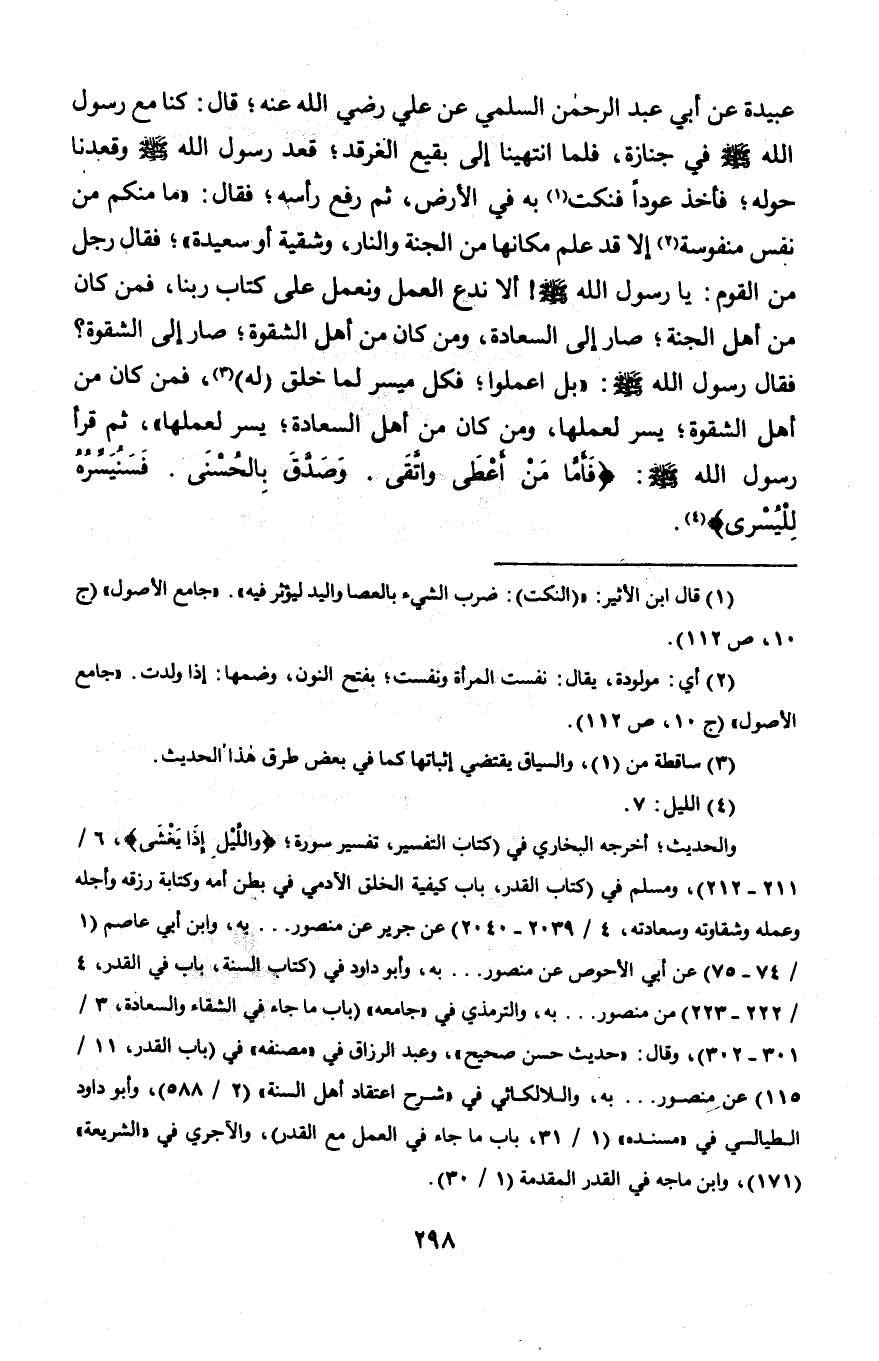 عبيدة عن أبي عبد الرحمٰن السلمي عن علي رضي الله عنه؛ قال: كنا مع رسول
الله ﷺ في جنازة، فلما انتهينا إلى بقيع الغرقد؛ قعد رسول الله ﷺ وقعدنا
حوله؛ فأخذ عوداً فنكت(١) به في الأرض، ثم رفع رأسه؛ فقال: «ما منكم من
نفس منفوسة(٢) إلا قد علم مكانها من الجنة والنار، وشقية أو سعيدة»؛ فقال رجل
من القوم: يا رسول الله ﷺ! ألا ندع العمل ونعمل على كتاب ربنا، فمن كان
من أهل الجنة؛ صار إلى السعادة، ومن كان من أهل الشقوة؛ صار إلى الشقوة؟
فقال رسول الله ﷺ: «بل اعملوا؛ فكل ميسر لما خلق (له)(٣)، فمن كان من
أهل الشقوة؛ يسر لعملها، ومن كان من أهل السعادة؛ يسر لعملها»، ثم قرأ
رسول الله ﷺ: ﴿فَأَمَّا مَنْ أَعْطَى واتَّقَى . وَصَدَّقَ بِالحُسْنَى . فَسَنُيَسِّرُهُ
لِلْيُسْرى﴾(٤).
(١) قال ابن الأثير: «(النكت): ضرب الشيء بالعصا واليد ليؤثر فيه». «جامع الأصول» (ج
١٠، ص ١١٢).
(٢) أي: مولودة، يقال: نفست المرأة ونفست؛ بفتح النون، وضمها: إذا ولدت. «جامع
الأصول» (ج ١٠، ص ١١٢).
(٣) ساقطة من (١)، والسياق يقتضي إثباتها كما في بعض طرق هٰذا الحديث.
(٤) الليل: ٧.
والحديث؛ أخرجه البخاري في (كتاب التفسير، تفسير سورة؛ ﴿واللَّيْلِ إِذَا يَغْشَى﴾، ٦ /
٢١١ - ٢١٢)، ومسلم في (كتاب القدر، باب كيفية الخلق الآدمي في بطن أمه وكتابة رزقه وأجله
وعمله وشقاوته وسعادته، ٤ / ٢٠٣٩ - ٢٠٤٠) عن جرير عن منصور... به، وابن أبي عاصم (١
/ ٧٤ - ٧٥) عن أبي الأحوص عن منصور... به، وأبو داود في (كتاب السنة، باب في القدر، ٤
/ ٢٢٢ - ٢٢٣) من منصور... به، والترمذي في «جامعه» (باب ما جاء في الشقاء والسعادة، ٣ /
٣٠١ - ٣٠٢)، وقال: «حديث حسن صحيح»، وعبد الرزاق في «مصنفه» في (باب القدر، ١١ /
١١٥) عن منصور... به، واللالكائي في «شرح اعتقاد أهل السنة» (٢ / ٥٨٨)، وأبو داود
الطيالسي في «مسنده» (١ / ٣١، باب ما جاء في العمل مع القدر)، والآجري في «الشريعة»
(١٧١)، وابن ماجه في القدر المقدمة (١ / ٣٠).
٢٩٨